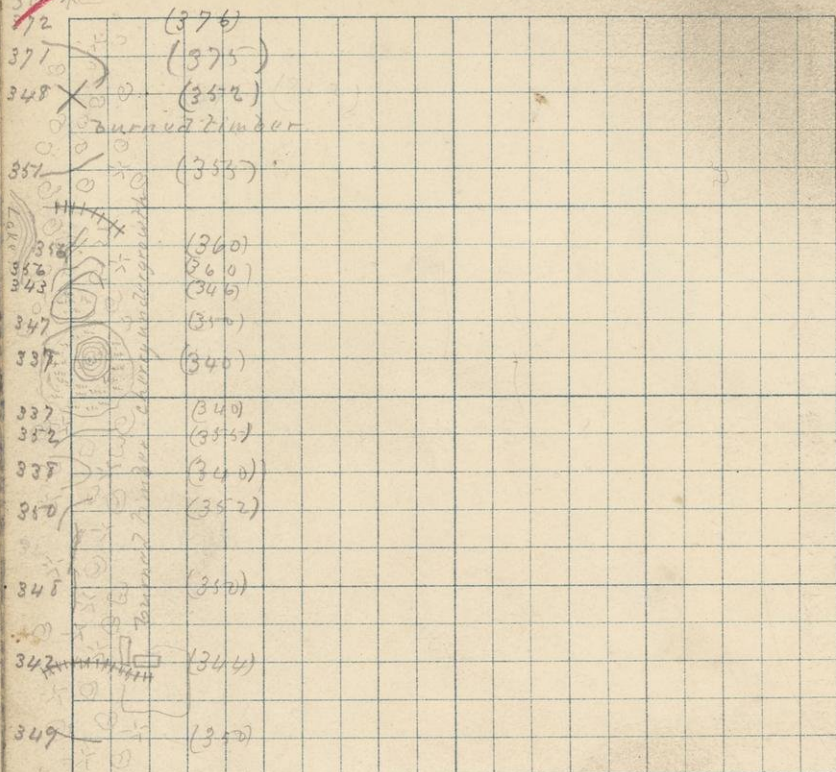 372 (376)
371 (375)
348 (352)
burned timber
351 (355)
Lake
356 (360)
356 (360)
343 (346)
347 (350)
337 (340)
337 (340)
352 (355)
338 (340)
350 (352)
348 (350)
342 (344)
349 (350)
burned timber cherry undergrowth